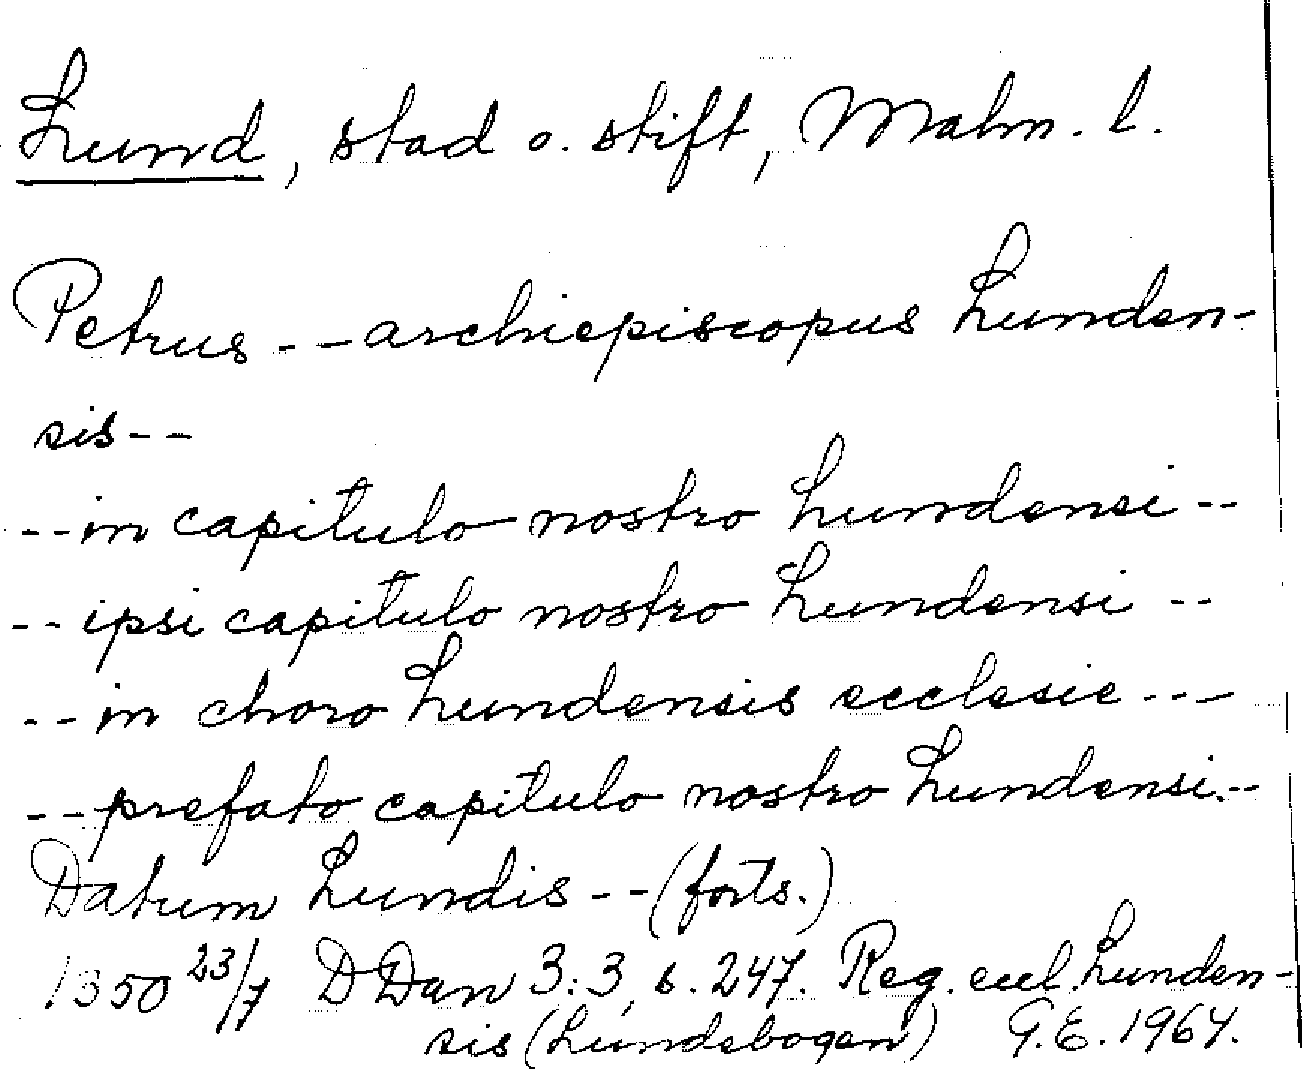 Lund, stad o. stift, Malm. l.
Petrus -- archiepiscopus Lunden-
sis--
--in capitulo nostro Lundensi--
--ipsi capitulo nostro Lundensi--
--in choro Lundensis ecclesie---
--prefato capitulo nostro Lundensi.--
Datum Lundis--(forts.)
1350 23/7 DDan 3:3, s. 247. Reg. eccl. Lunden-
sis (Lundebogen) G.E. 1964.